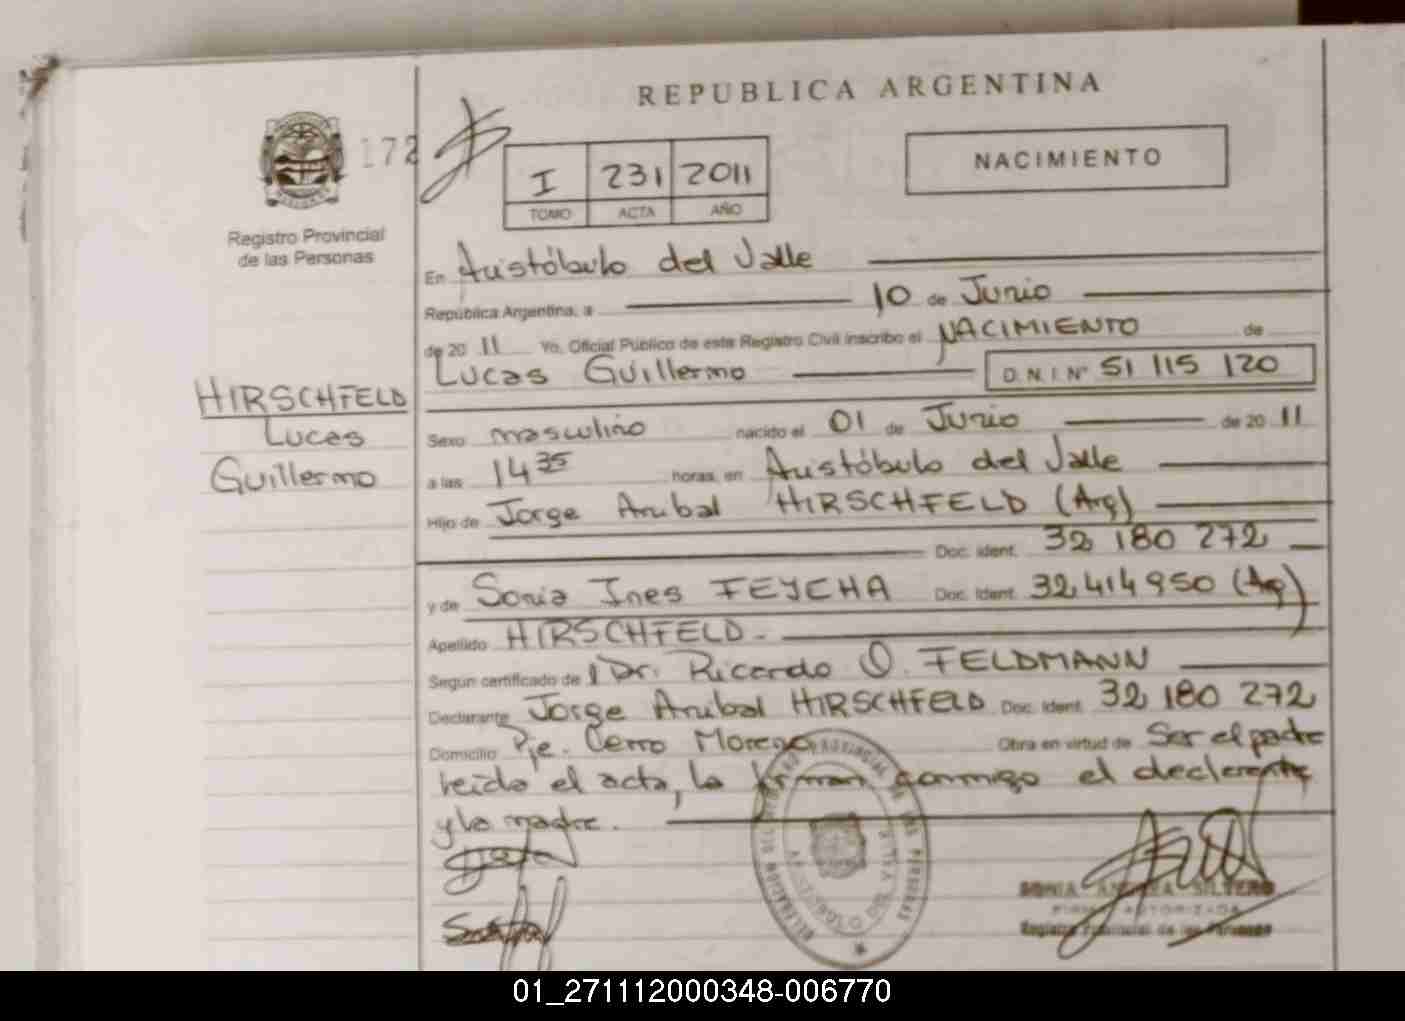 REPUBLICA ARGENTINA
172
NACIMIENTO
I 231 2011
TOMO ACTA AÑO
Registro Provincial
de las Personas
En Aristóbulo del Valle
República Argentina, a 10 de Junio
de 20 11 Yo, Oficial Público de este Registro Civil inscribo el NACIMIENTO de
Lucas Guillermo D.N.I. Nº 51 115 120
HIRSCHFELD
Lucas
Guillermo
Sexo masculino nacido el 01 de Junio de 20 11
a las 14 35 horas, en Aristóbulo del Valle
Hijo de Jorge Anibal HIRSCHFELD (Arg)
Doc. Ident. 32 180 272
y de Sonia Ines FEYCHA Doc. Ident. 32.414.950 (Arg)
Apellido HIRSCHFELD.-
Según certificado de Dr. Ricardo O. FELDMANN
Declarante Jorge Anibal HIRSCHFELD Doc. Ident. 32 180 272
Domicilio Pje. Cerro Moreno Obra en virtud de Ser el padre
leido el acta, la firman conmigo el declarante
y la madre.
SONIA ANDREA SILVERO
FIRMA AUTORIZADA
Registro Provincial de las Personas
01_271112000348-006770